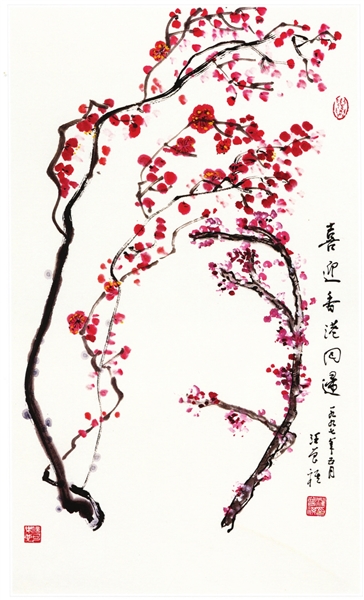 喜迎香港回歸
一九九七年五月
汪曾祺